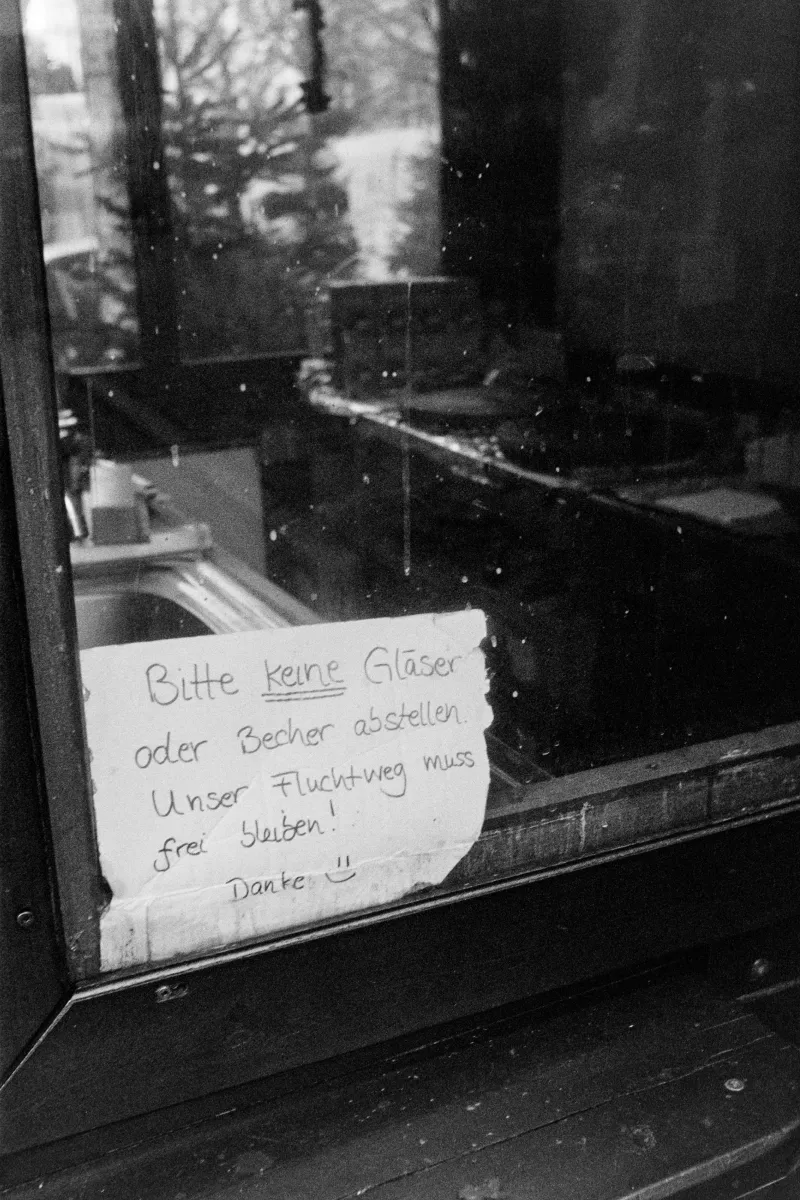 Bitte keine Gläser
oder Becher abstellen.
Unser Fluchtweg muss
frei bleiben!
Danke